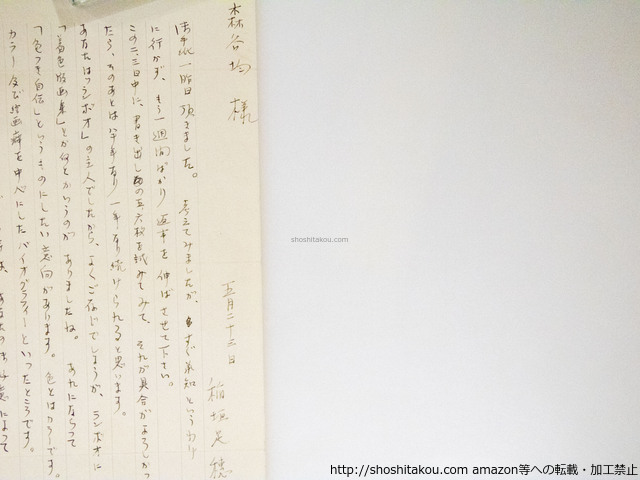 森谷均 様
五月二十三日
稲垣足穂
御手紙一昨日頂きました。考えてみましたが、すぐ承知というわけ
に行かず、もう一週間ばかり返事を伸ばさせて下さい。
この二、三日中に、書き出しの五六枚を試みてみて、それが具合がよろしかっ
たら、そのあとは半年なり一年なり続けられると思います。
あなたは「ランボオ」の主人でしたから、よくごぞんじでしょうが、ランボオに
「着色版画集」とか何とかいうのがありましたね。あれにならって
「色つき自伝」というものにしたい意向があります。色とはカラーです。
カラー及び絵画癖を中心にしたバイオグラフィーといったところです。
shoshitakou.com
http://shoshitakou.com amazon等への転載・加工禁止